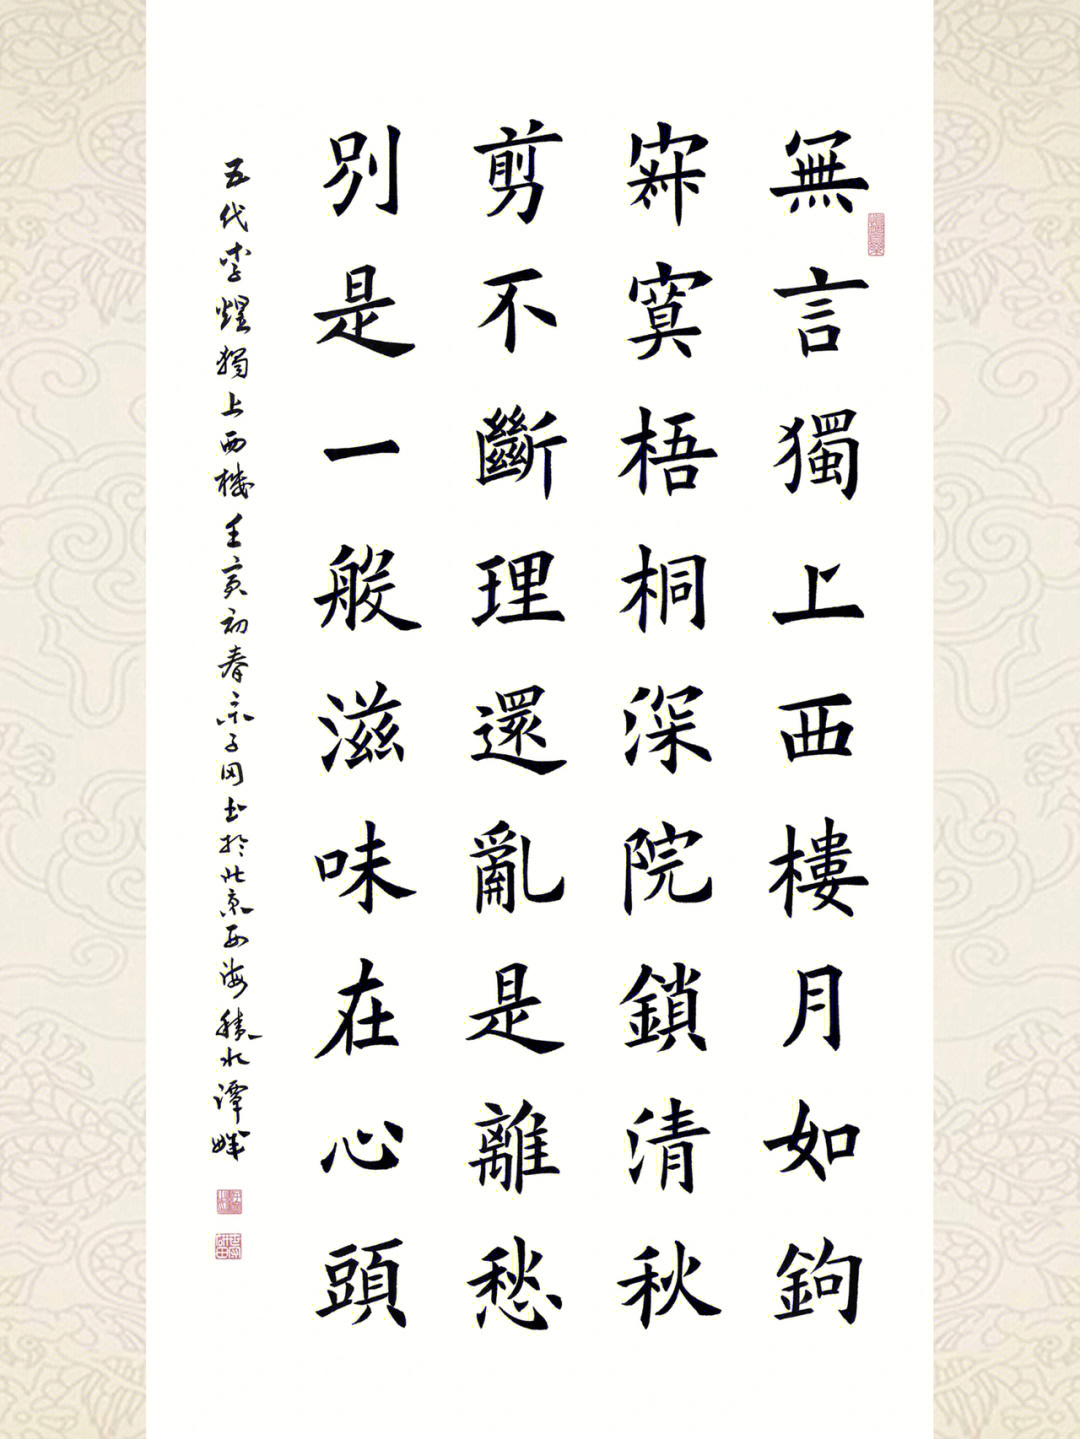 無言獨上西樓月如鉤
寂寞梧桐深院鎖清秋
剪不斷理還亂是離愁
別是一般滋味在心頭
五代李煜獨上西樓壬寅初春宗子岡書於北京西海積水潭畔